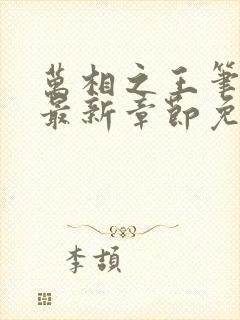 萬相之王筆
最新章節免
李頡